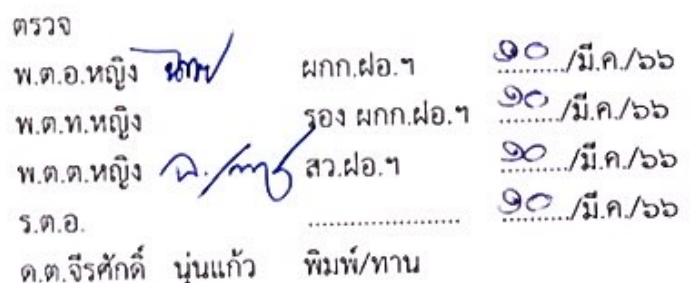 ตรวจ
พ.ต.อ.หญิง ผกก.ฝอ.ฯ ๑๐/มี.ค./๖๖
พ.ต.ท.หญิง รอง ผกก.ฝอ.ฯ ๑๐/มี.ค./๖๖
พ.ต.ต.หญิง สว.ฝอ.ฯ ๑๐/มี.ค./๖๖
ร.ต.อ. ..................... ๑๐/มี.ค./๖๖
ด.ต.จีรศักดิ์ นุ่นแก้ว พิมพ์/ทาน